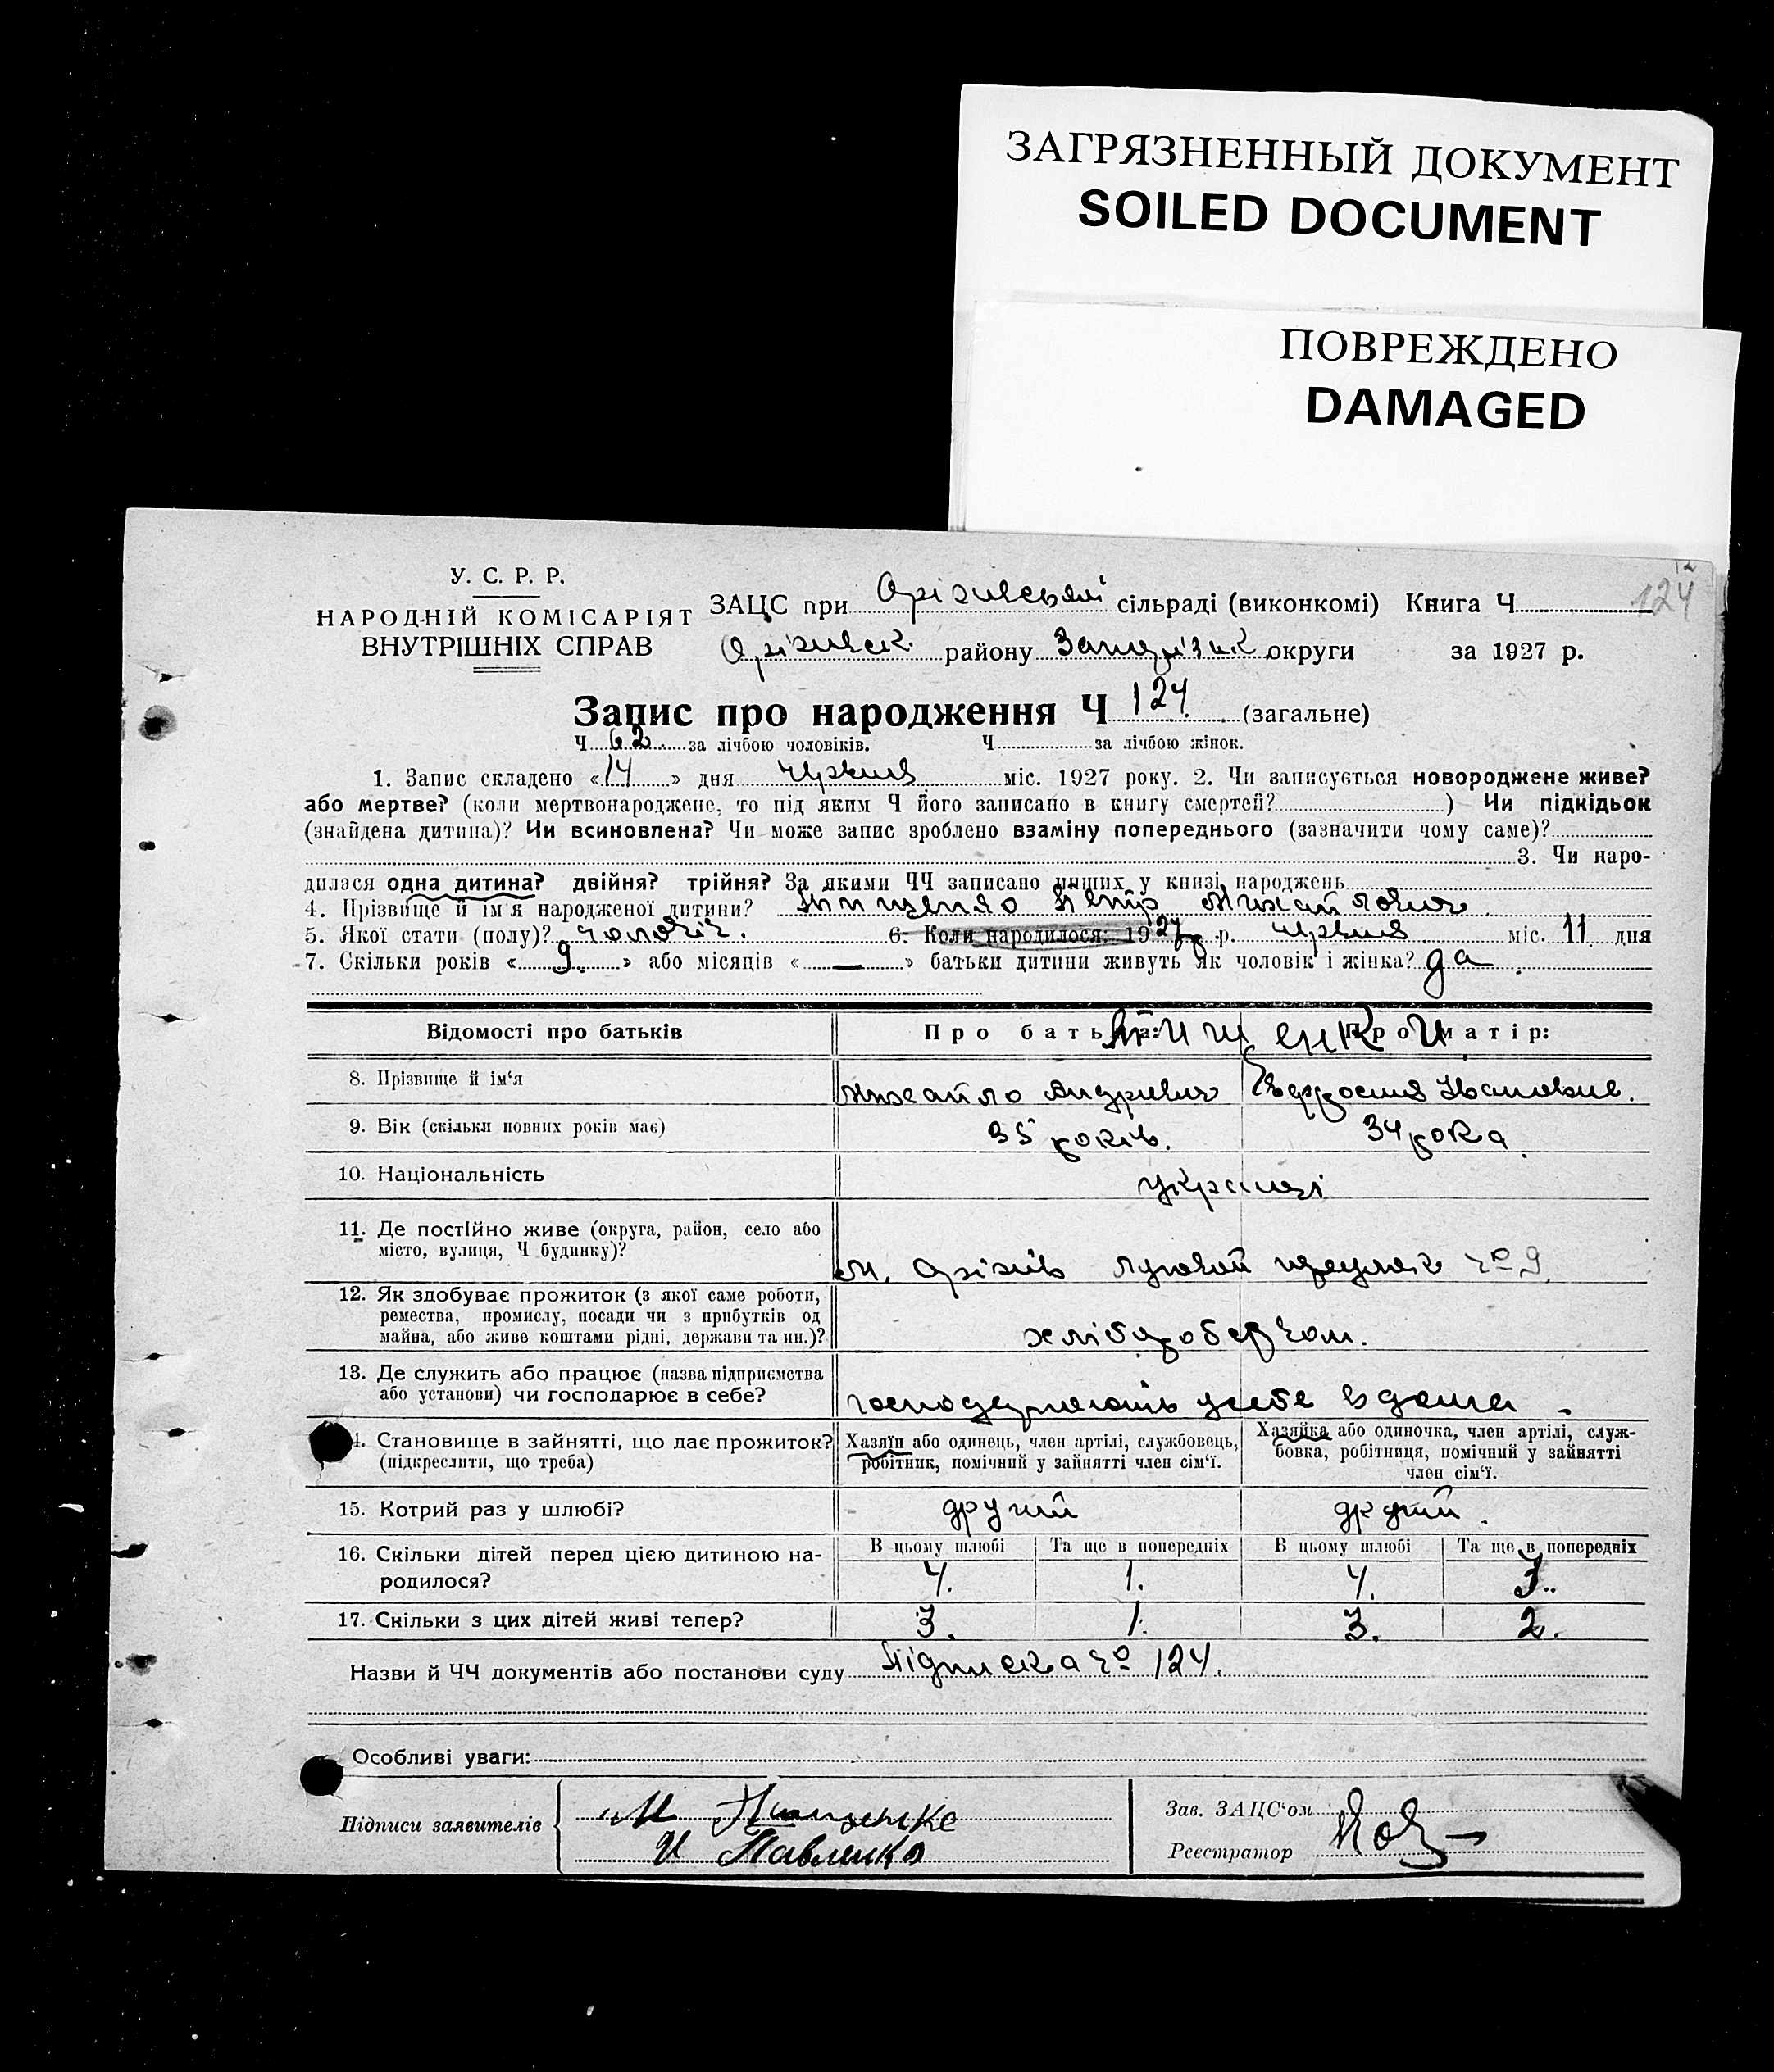 ЗАГРЯЗНЕННЫЙ ДОКУМЕНТ
SOILED DOCUMENT
ПОВРЕЖДЕНО
DAMAGED
У. С. Р. Р.
НАРОДНІЙ КОМІСАРІЯТ
ВНУТРІШНІХ СПРАВ
ЗАЦС при Оріхівській сільраді (виконкомі) Книга Ч. 124
Оріхівськ району Запорізьк округи за 1927 р.
Запис про народження Ч 124 (загальне)
Ч 62 за лічбою чоловіків. Ч за лічбою жінок.
1. Запис складено «14» дня червня міс. 1927 року. 2. Чи записується новороджене живе?
або мертве? (коли мертвонароджене, то під яким Ч його записано в книгу смертей? ) Чи підкідьок
(знайдена дитина)? Чи всиновлена? Чи може запис зроблено взаміну попереднього (зазначити чому саме)?
3. Чи наро-
дилася одна дитина? двійня? трійня? За якими ЧЧ записано инших у книзі народжень
4. Прізвище й ім'я народженої дитини? Петр Михайлович
5. Якої стати (полу)? чоловіч. 6. Коли народилося: 1927 р. червня міс. 11 дня
7. Скільки років «9» або місяців «—» батьки дитини живуть як чоловік і жінка? да
Відомості про батьків Про батька: Про матір:
8. Прізвище й ім'я Михайло Андрієвич Івановна.
9. Вік (скільки повних років має) 35 років. 34 рока
10. Національність українці
11. Де постійно живе (округа, район, село або
місто, вулиця, Ч будинку)? м. Оріхів переулок 9
12. Як здобуває прожиток (з якої саме роботи,
ремества, промислу, посади чи з прибутків од
майна, або живе коштами рідні, держави та ин.)? хліборобством.
13. Де служить або працює (назва підприємства
або установи) чи господарює в себе? господарюють у себе вдома
14. Становище в зайнятті, що дає прожиток?
(підкреслити, що треба)
Хазяїн або одинець, член артілі, службовець,
робітник, помічний у зайнятті член сім'ї.
Хазяйка або одиночка, член артілі, служ-
бовка, робітниця, помічний у зайнятті
член сім'ї.
15. Котрий раз у шлюбі? другий другий.
В цьому шлюбі Та ще в попередніх В цьому шлюбі Та ще в попередніх
16. Скільки дітей перед цією дитиною на-
родилося? 4. 1. 4. 3.
17. Скільки з цих дітей живі тепер? 3. 1. 3. 2.
Назви й ЧЧ документів або постанови суду Підписка 124.
Особливі уваги:
Підписи заявителів
И Павленко
Зав. ЗАЦС'ом
Реєстратор